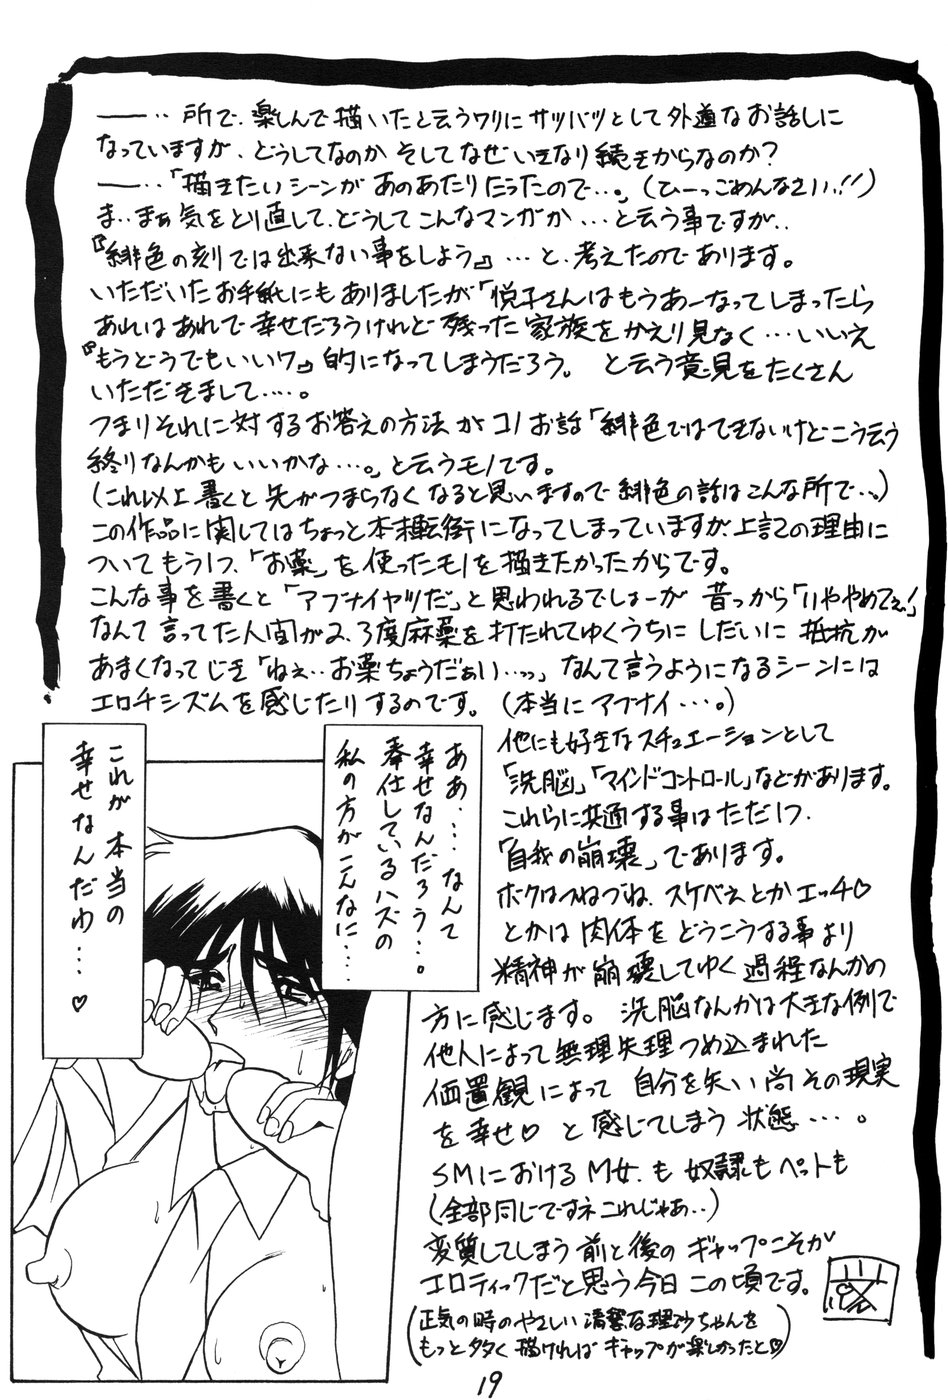 ――‥所で、楽しんで描いたと云うワリにサツバツとして外道なお話しに
なっていますが、どうしてなのか そしてなぜいきなり続きからなのか?
――‥「描きたいシーンがあのあたりだったので…。」(ひーっごめんなさいい!!)
ま‥まぁ気をとり直して、どうしてこんなマンガか…と云う事ですが‥
『緋色の刻では出来ない事をしよう』…と、考えたのであります。
いただいたお手紙にもありましたが「悦子さんはもうあーなってしまったら
あれはあれで幸せだろうけれど残った家族をかえり見なく…いいえ
『もうどうでもいいワ』的になってしまうだろう。 と云う意見をたくさん
いただきまして‥‥。
つまりそれに対するお答えの方法がコノお話「緋色ではできないけどこう云う
終りなんかもいいかな…。」と云うモノです。
(これ以上書くと先がつまらなくなると思いますので緋色の話はこんな所で‥。)
この作品に関してはちょっと本末転倒になってしまっていますが、上記の理由に
ついてもう1つ、「お薬」を使ったモノを描きたかったからです。
こんな事を書くと「アブナイヤツだ」と思われるでしょーが 昔っから「いややめてぇ!」
なんて言ってた人間が2、3度麻薬を打たれてゆくうちに しだいに抵抗が
あまくなってじき「ねぇ‥お薬ちょうだぁい…っ」なんて言うようになるシーンには
エロチシズムを感じたりするのです。(本当にアブナイ…。)
他にも好きなスチュエーションとして
「洗脳」「マインドコントロール」などがあります。
これらに共通する事はただ1つ、
「自我の崩壊」であります。
ボクはつねづね、スケベぇとかエッチ♡
とかは肉体をどうこうする事より
精神が崩壊してゆく過程なんかの
方に感じます。 洗脳なんかは大きな例で
他人によって無理矢理つめ込まれた
価値観によって 自分を失い尚その現実
を幸せ♡と感じてしまう状態‥‥。
SMにおけるM女も奴隷もペットも
(全部同じですネこれじゃあ‥)
変質してしまう前と後のギャップこそが
エロティックだと思う今日この頃です。
(正気の時のやさしい清楚な理砂ちゃんを
もっと多く描ければギャップが楽しかったと♡)
ああ…なんて
幸せなんだろう…。
奉仕しているハズの
私の方がこんなに…
これが本当の
幸せなんだゎ…♡
19